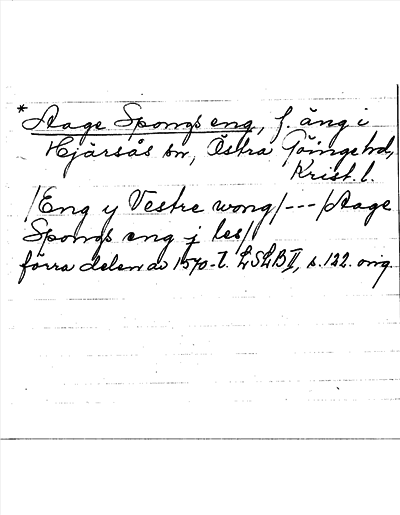 * Aage Spongs eng, f. äng i
Hjärsås sn, Östra Göinge hd,
Krist. l.
/Eng y Vestre wong/---/Aage
Spongs eng j les//
förra delen av 1570-t. LSLB II, s. 122. orig.